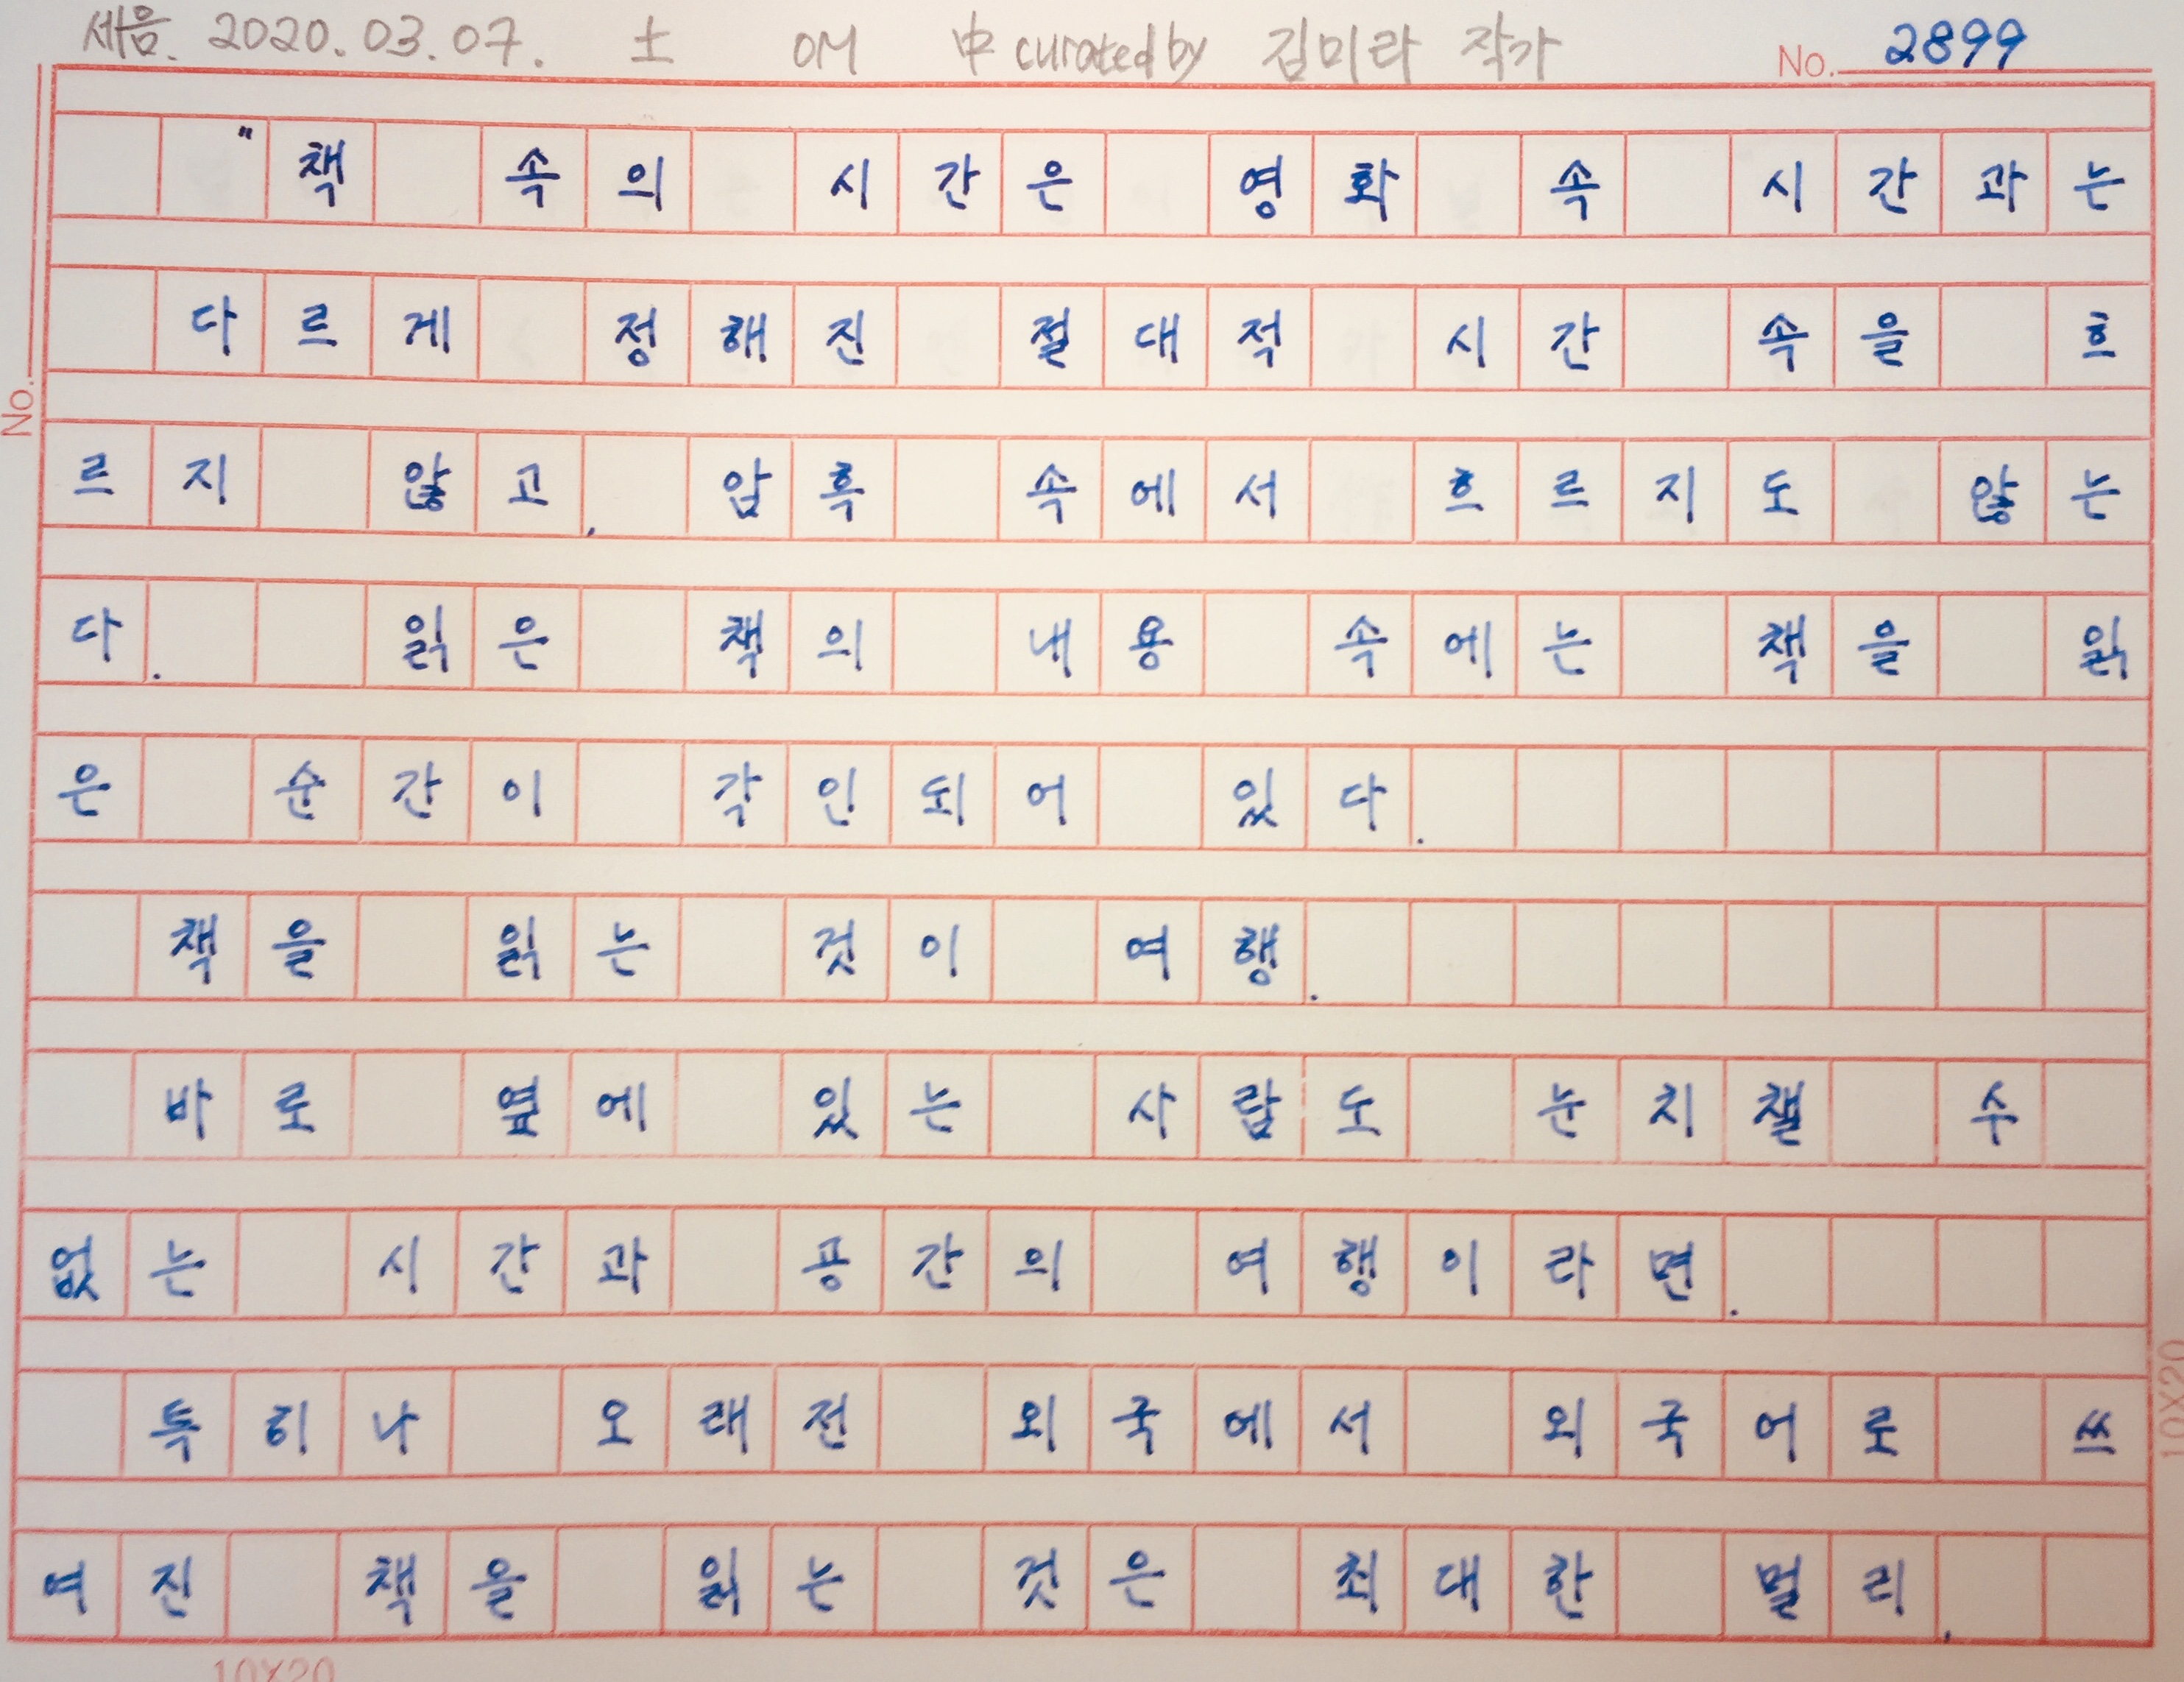 세음. 2020. 03. 07. 土 OM 中 curated by 김미라 작가 No. 2899
"책 속의 시간은 영화 속 시간과는
다르게 정해진 절대적 시간 속을 흐
르지 않고, 암흑 속에서 흐르지도 않는
다. 읽은 책의 내용 속에는 책을 읽
은 순간이 각인되어 있다.
책을 읽는 것이 여행.
바로 옆에 있는 사람도 눈치챌 수
없는 시간과 공간의 여행이라면.
특히나 오래전 외국에서 외국어로 쓰
여진 책을 읽는 것은 최대한 멀리,
No.
10X20
10X20